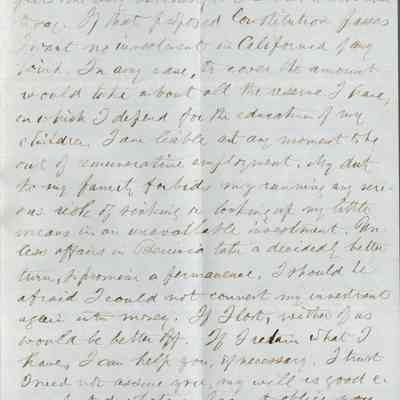 Gray. If that proposed Constitution passes
I want no investments in California of any
kind. In any case, to cover the amount
would take about all the reserve I have,
on which I depend for the education of my
children. I am liable at any moment to be
out of remunerative employment. My duty
to my family forbids my running any seri-
ous risk of sinking or locking up my little
means in an unavailable investment. Un-
less affairs in Benicia take a decidedly better
turn, & promise a permanence, I should be
afraid I could not convert my investment
again into money. If I lost, neither of us
would be better off. If I retain what I
have, I can help you, if necessary. I trust
I need not assure you, my will is good e-